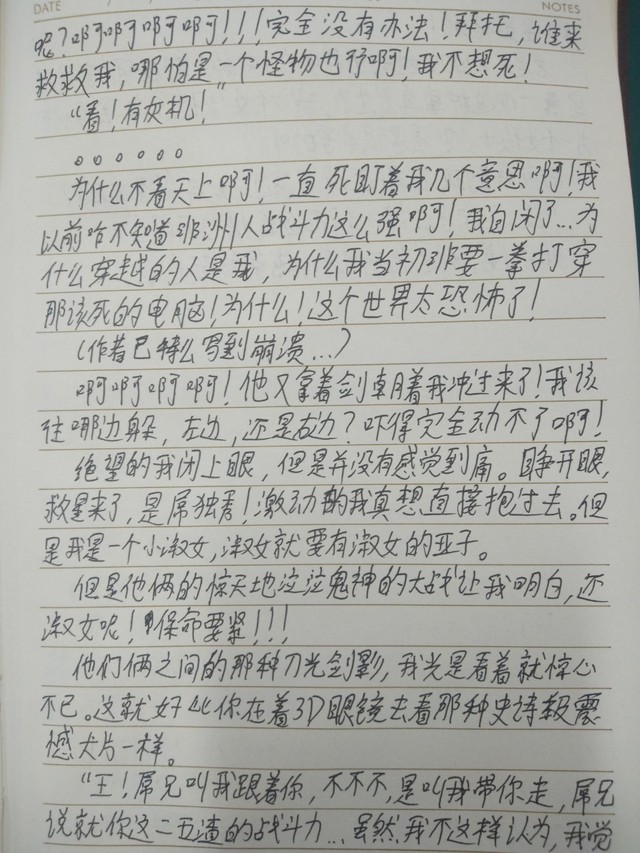 DATE
NOTES
呢？啊啊啊啊啊！！！完全没有办法！拜托，谁来
救救我，哪怕是一个怪物也行啊！我不想死！
“看！有灰机！
。。。。。。
为什么不看天上啊！一直死盯着我几个意思啊！我
以前咋不知道非洲人战斗力这么强啊！我自闭了…为
什么穿越的人是我，为什么我当初非要一拳打穿
那该死的电脑！为什么！这个世界太恐怖了！
（作者已特么写到崩溃…）
啊啊啊啊！他又拿着剑朝着我冲过来了！我该
往哪边躲，左边，还是右边？吓得完全动不了啊！
绝望的我闭上眼，但是并没有感觉到痛。睁开眼，
救星来了，是屌独秀！激动的我真想直接抱过去。但
是我是一个小淑女，淑女就要有淑女的亚子。
但是他俩的惊天地泣泣鬼神的大战让我明白，还
淑女呢！保命要紧！！！
他们俩之间的那种刀光剑影，我光是看着就惊心
不已。这就好比你在看3D眼镜去看那种史诗级震
憾大片一样。
“王！屌兄叫我跟着你，不不不，是叫我带你走，屌兄
说就你这二五渣的战斗力…虽然我不这样认为，我觉